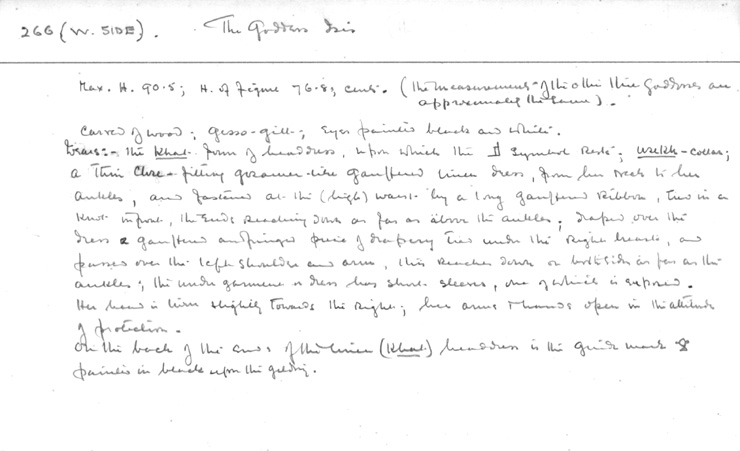 266 (W. SIDE). The Goddess Isis
Max. H. 90.5; H. of Figure 76.8; cents. (The measurements of the other three Goddesses are
approximately the same).
Carved of wood; gesso-gilt; Eyes painted black and white.
Wears:- the Khat form of headdress, upon which the symbol rests; wsekh-collar;
a thin close-fitting gossamer-like gauffered linen dress, from her neck to her
ankles, and fastened at the (high) waist by a long gauffered ribbon, tied in a
knot in front, the ends reaching down as far as above the ankles; draped over the
dress a gauffered and fringed piece of drapery tied under the right breast, and
passed over the left shoulder and arm, this reaches down on both sides as far as the
ankles; the under garment or dress has short sleeves, one of which is exposed.
Her head is turned slightly towards the right; her arms & hands open in the attitude
of protection.
On the back of the ends of the linen (Khat) headdress is the guide mark
painted in black upon the gilding.